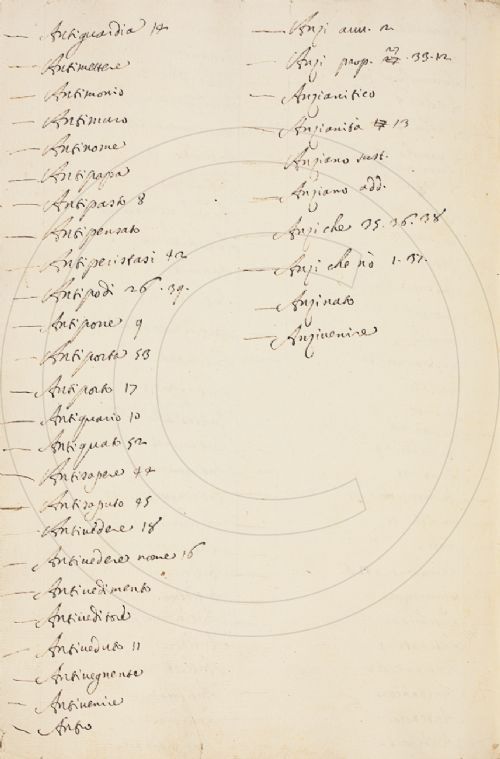 Antiguardia 14
Antimettere
Antimonio
Antimuro
Antinome
Antipapa
Antipasto 8
Antipensato
Antiperistasi 42
Antipodi 26. 39.
Antipone 9
Antiporta 53
Antiporto 17
Antiquario 10
Antiquato 52
Antisapere 44
Antisaputo 45
Antivedere 18
Antivedere nome 16
Antivedimento
Antiveditore
Antiveduto 11
Antivegnente
Antivenire
Antro
Anzi avv. 2
Anzi prep. 27. 33. 12
Anzianitico
Anzianità 13
Anziano sust.
Anziano add.
Anziche 35. 36. 38
Anzi che nò 1. 37.
Anzinato
Anzivenire